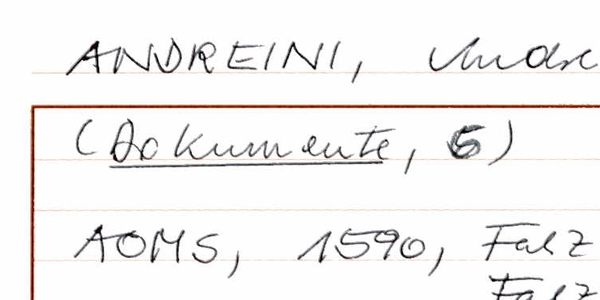 ANDREINI,
(Dokumente, 5)
AOMS, 1590, Falz
Falz